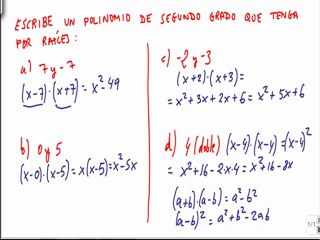 ESCRIBE UN POLINOMIO DE SEGUNDO GRADO QUE TENGA
POR RAÍCES:
a) 7 y -7
(x-7)·(x+7) = x²-49
b) 0 y 5
(x-0)·(x-5) = x(x-5) = x²-5x
c) -2 y -3
(x+2)·(x+3) =
= x²+3x+2x+6 = x²+5x+6
d) 4 (doble) (x-4)·(x-4) = (x-4)²
= x²+16-2·x·4 = x²+16-8x
(a+b)·(a-b) = a²-b²
(a-b)² = a²+b²-2ab
1/1